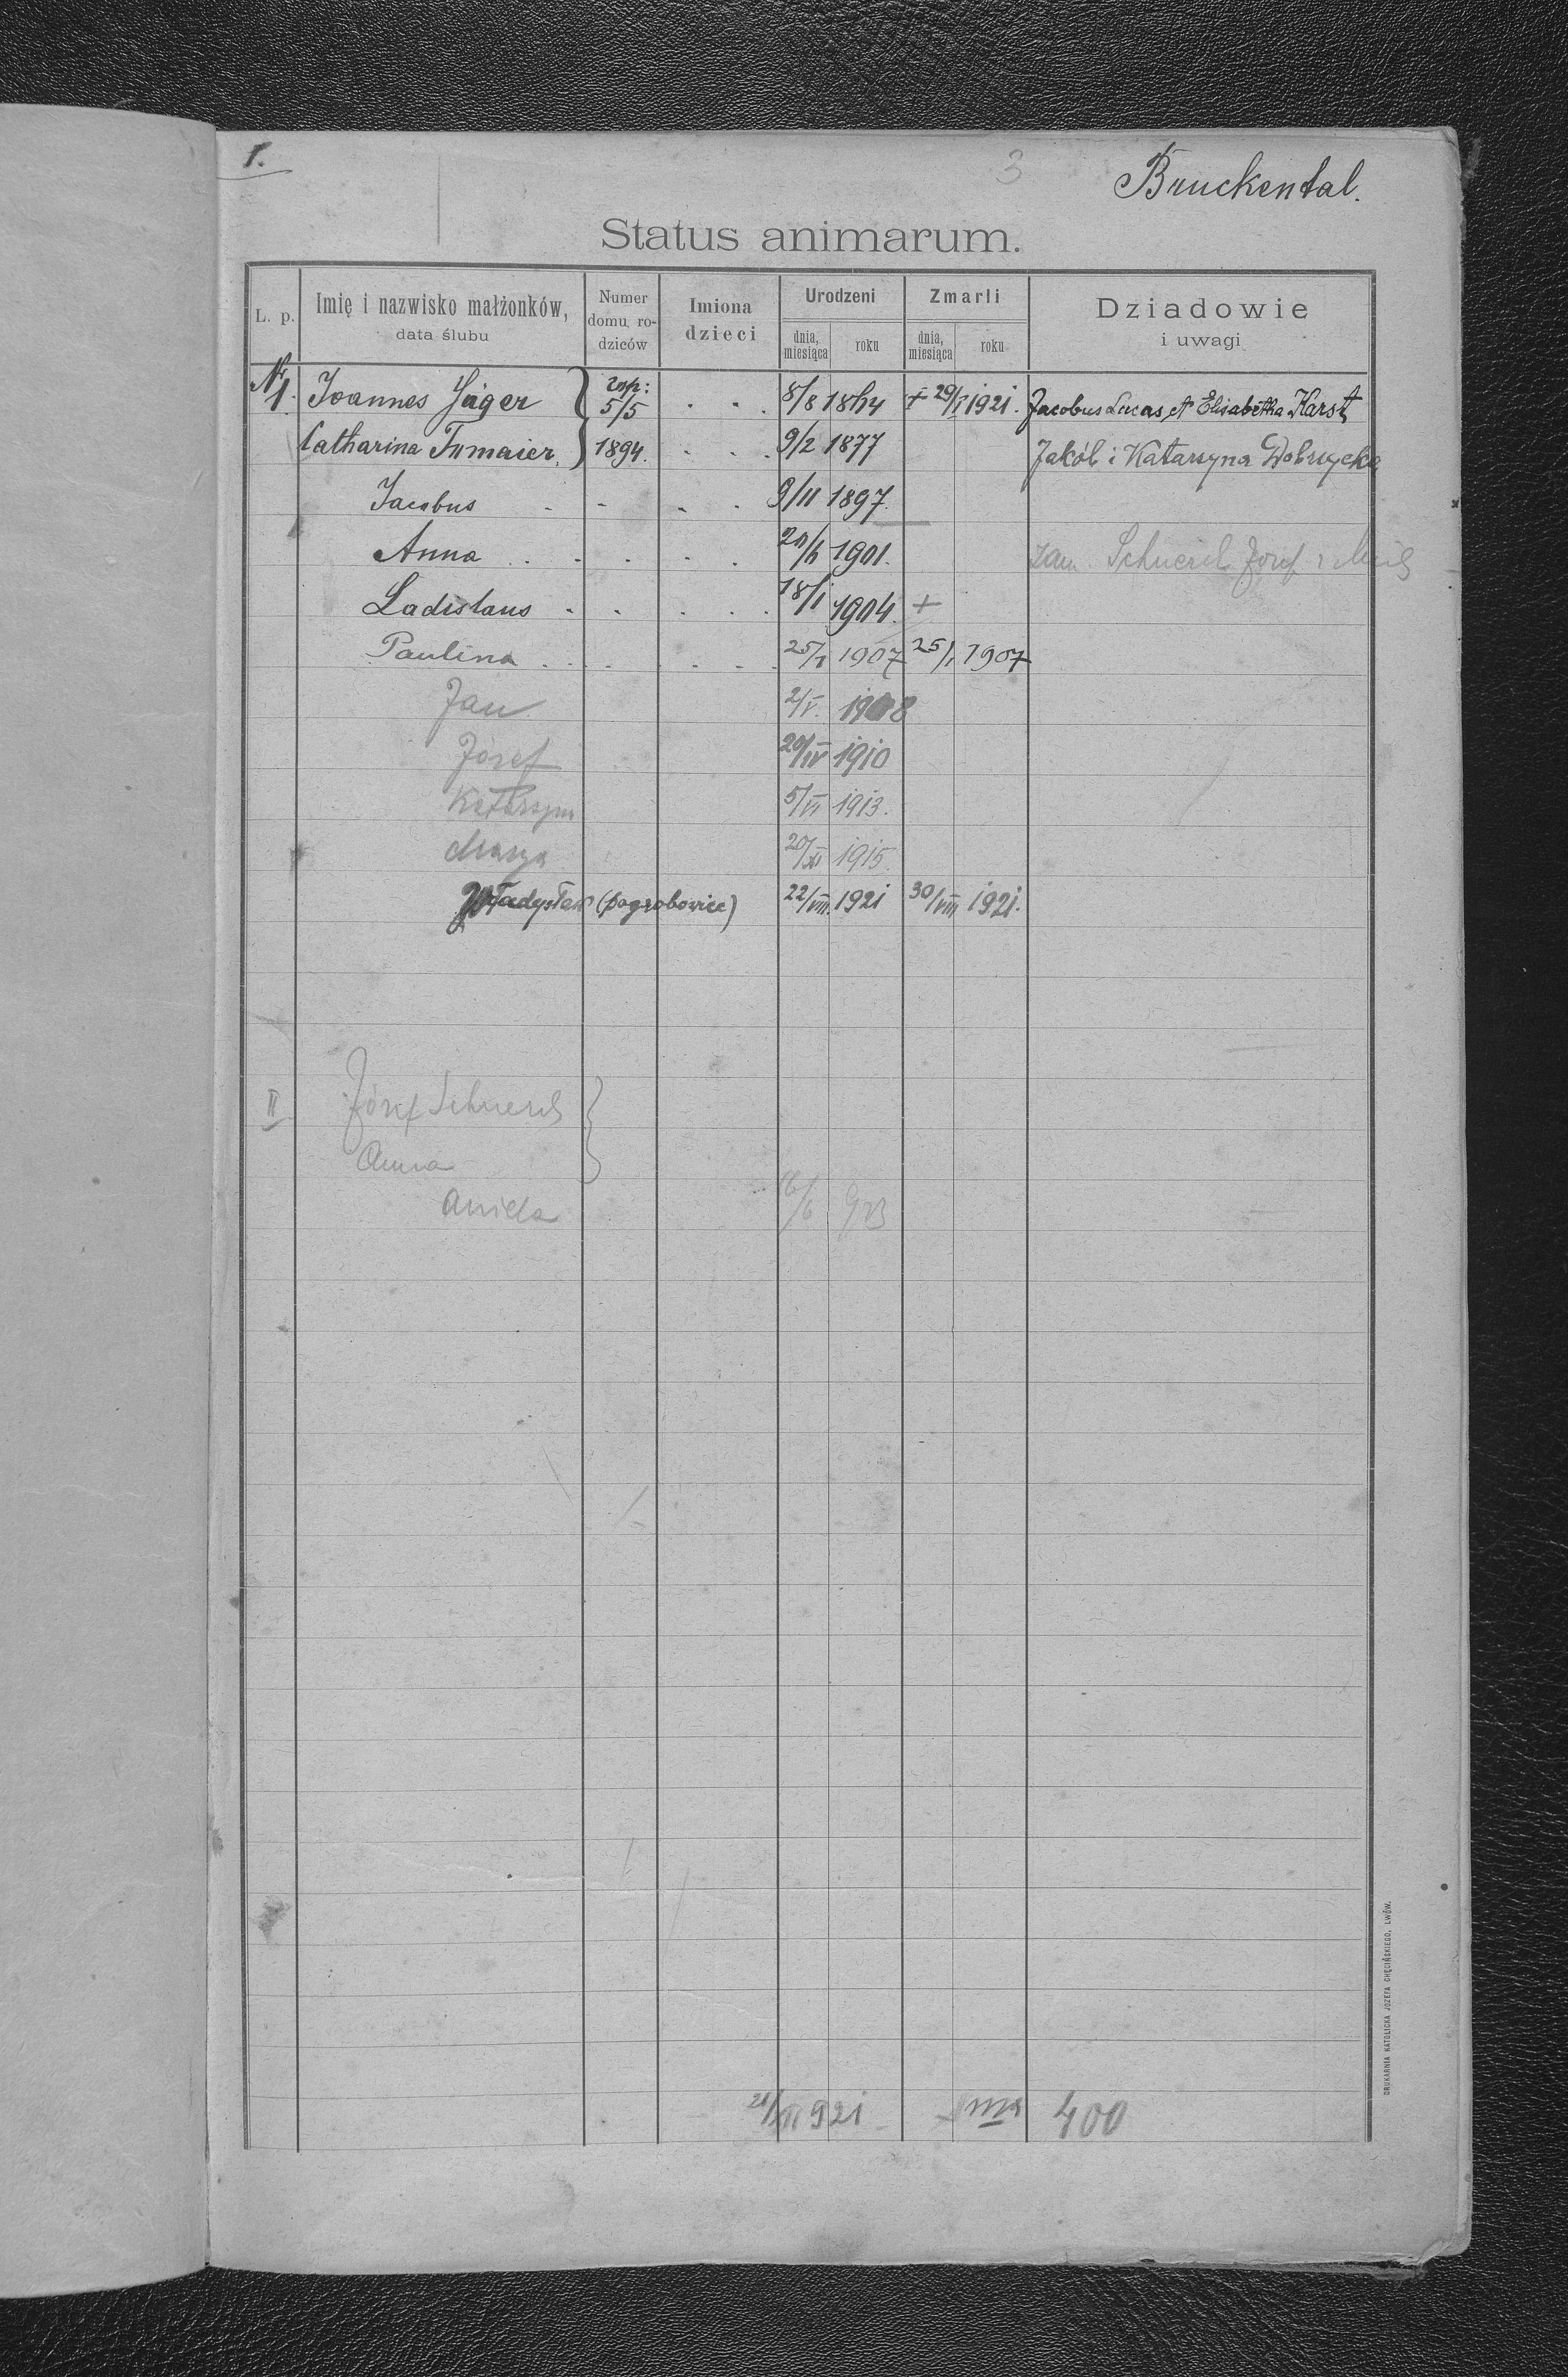 1.
3
Bruckental.
Status animarum.
L. p. Imię i nazwisko małżonków, data ślubu Numer domu rodziców Imiona dzieci Urodzeni dnia, miesiąca roku Zmarli dnia, miesiąca roku Dziadowie i uwagi
Nr 1. Joannes Jäger 5/5 8/8 + 29/ 1921. Jacobus Lucas et Elisabetha Karst
Catharina Tumaier 1894. 9/2 1877 Jakób i Katarzyna
Jacobus 9/11 1897.
Anna 1901. zam. Józef
Ladislaus 18/1 1904. +
Paulina 25/1 1907 25/1 1907
Jan 2/V. 1908
Józef 20/IV 1910
5/VI 1913.
20/XI 1915.
Władysław (pogrobowiec) 22/VIII. 1921 30/VIII 1921.
II Józef
Anna
Aniela 923
921 400
DRUKARNIA KATOLICKA JOZEFA CHĘCIŃSKIEGO, LWÓW.